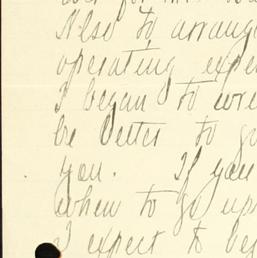 Also to arrang
operating expe
I began to wre
be better to go
you. If you
when to go up
I expect to be